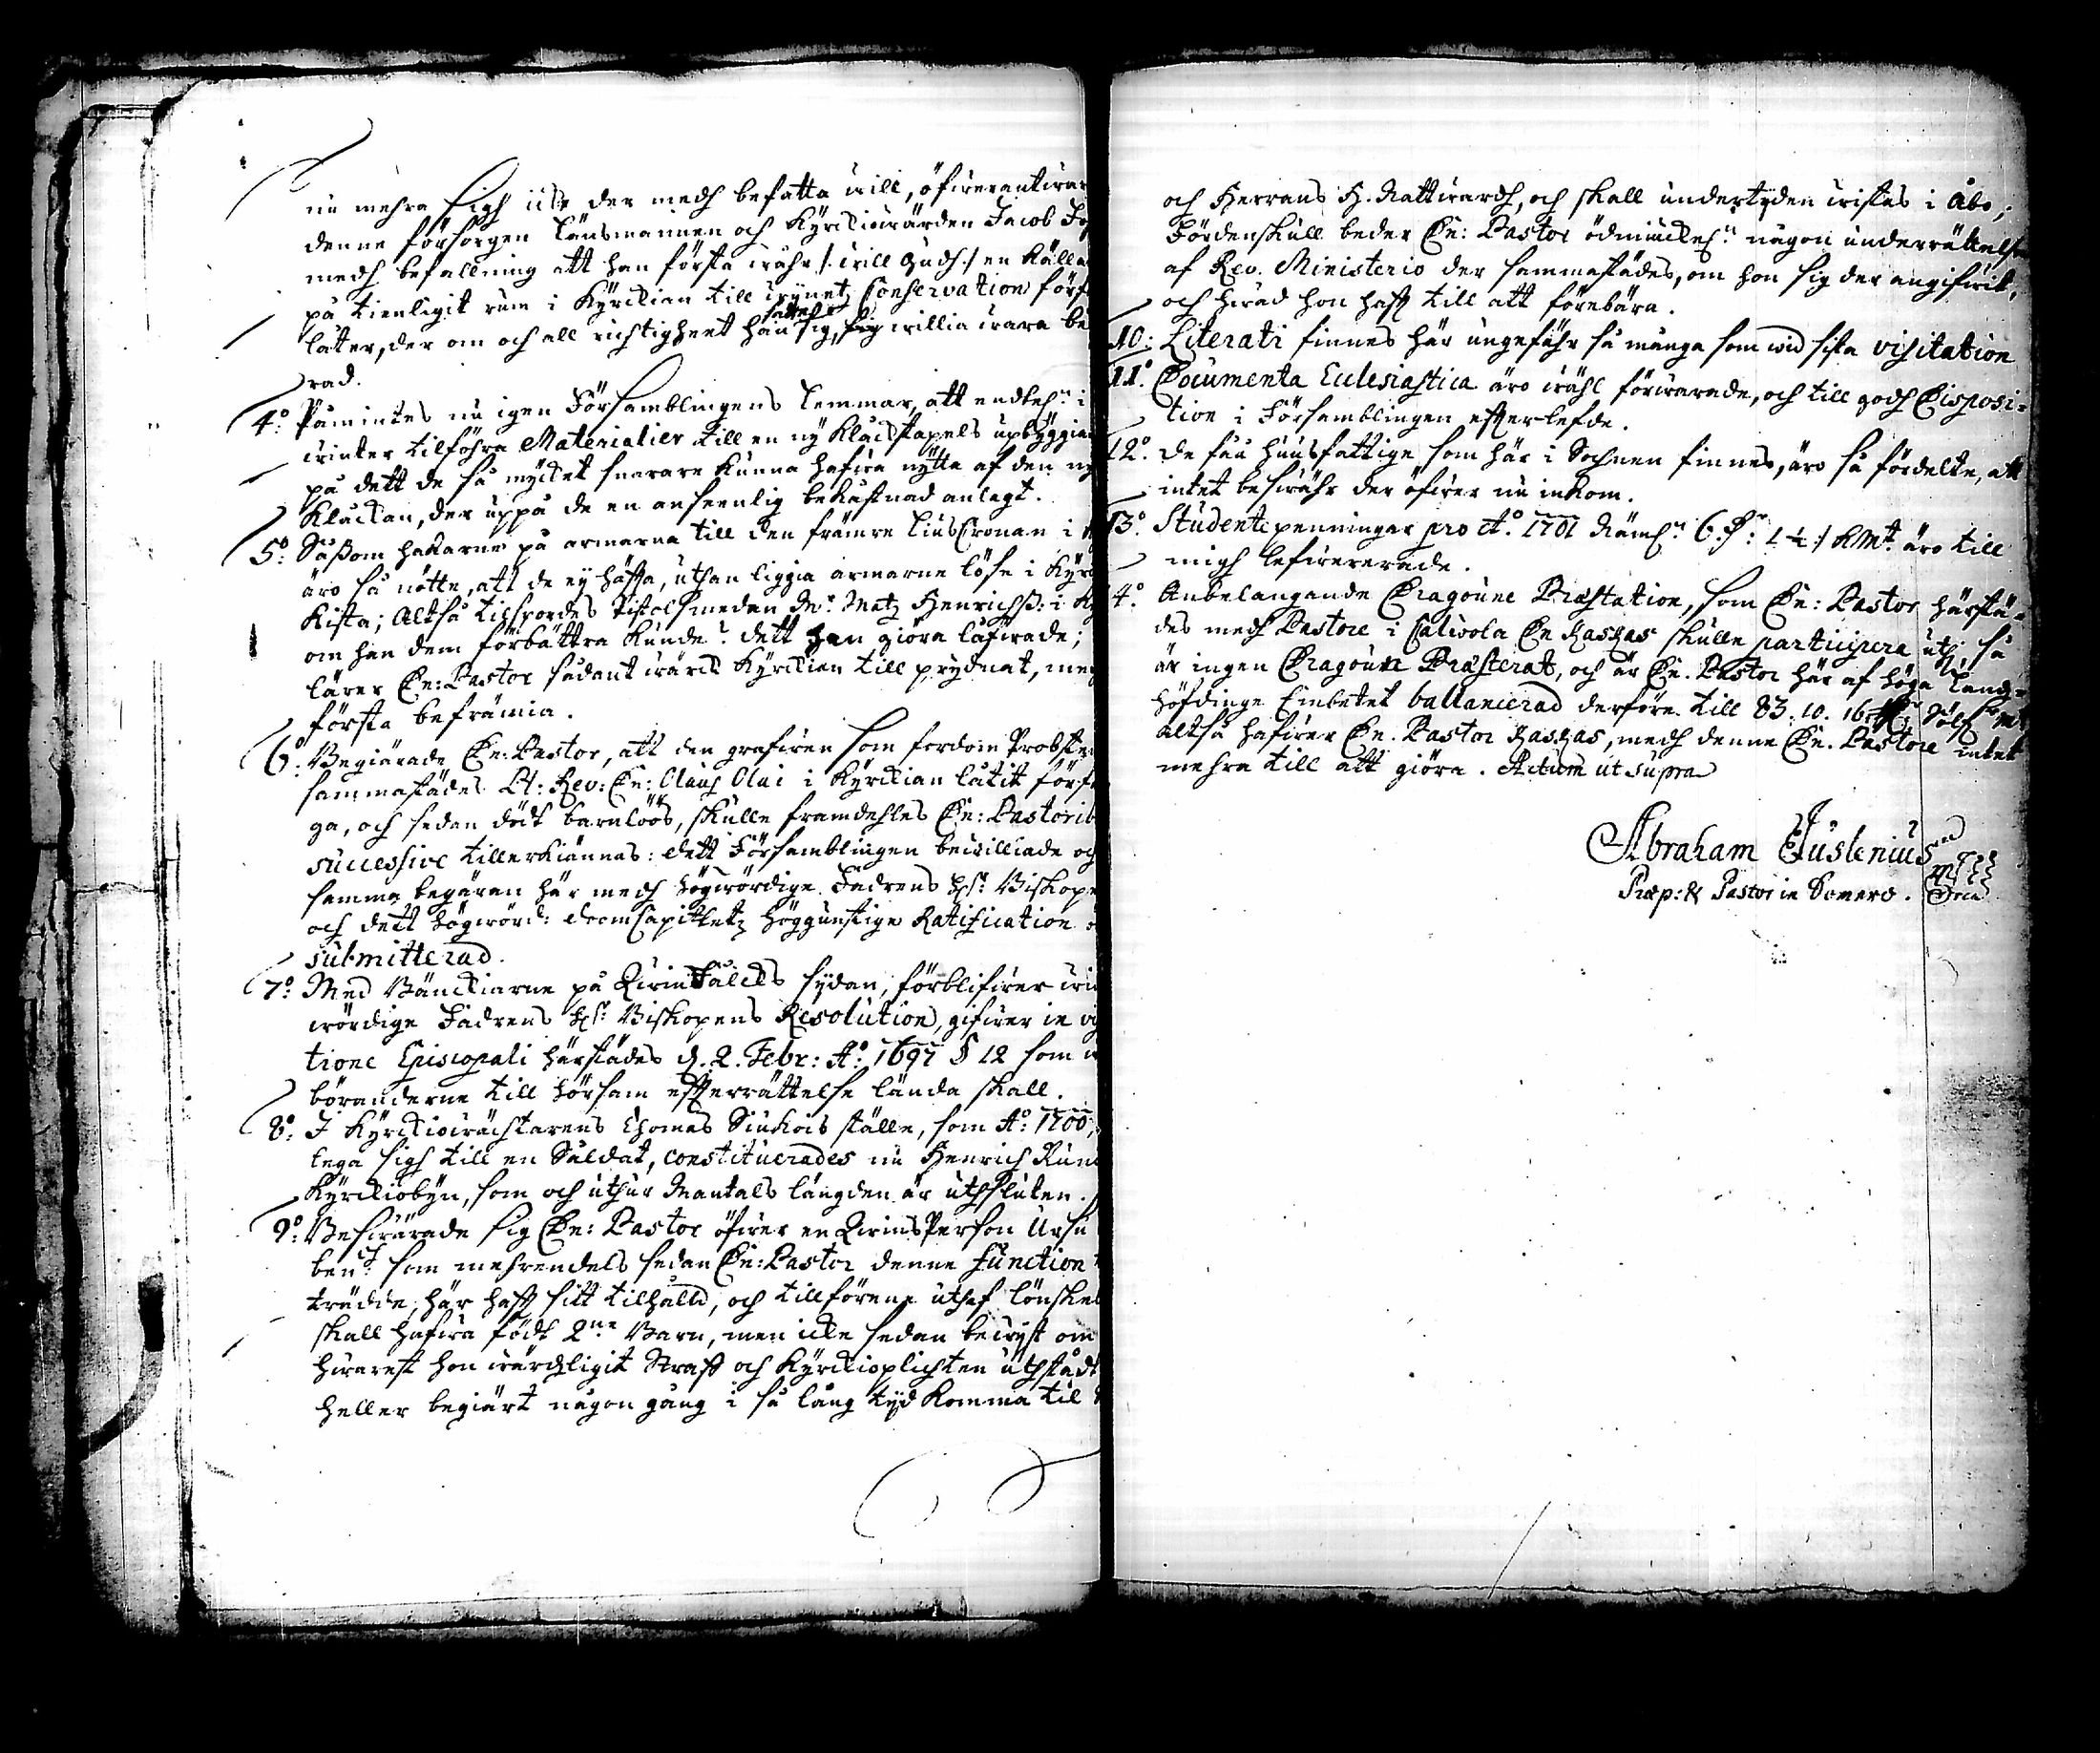 nu mehra sigh icke der medh befatta will, öfwerantwar
denne försorgen Länsmannen och Kyrckiowärden Jacob
medh befallning att han första währ /: will Gudh :/ en källa
på tienligit rum i Kyrckian till wijnetz Conservation förf
later, der om och all richtigheet han sig, sig willia wara be
rad.
4º: Påmintes nu igen Församblingens Lemmar, att endtel:n i
winter tilföhra Materialier till en ny Klåckstapels upbyggia
på dett de så mycket snarare kunna hafwa nytta af den ny
Kluckan, der uppå de en anseenlig bekåstnad anlagt.
5º: Såssom hakarne på armarna till den främre Lius Cronan i
äro så nötte, att de ey häffta, uthan liggia armarne löse i Kyrc
Kista; Altså tilspordes Pistolsmeden Mr: Matz Henrichss: i Ky
om han dem förbättra kunde? dett han giöra låfwade;
lärer Dn: Pastor sådant wärck Kyrckian till prydnat, med
första befrämia.
6º: Begiärade Dn: Pastor, att den grafwen som fordom Probsten
sammastädes Ad: Rev: Dn: Claus Olai i Kyrckian låtit förf
ga, och sedan dödt barnlöös, skulle framdehles Dn: Pastorib
successive tillerkiännas: dett Församblingen bewilliade och
samma begäran här medh Högwördige Fadrens Hr: Biskope
och dett Högwörd: DoomCapitletz höggunstige Ratification
submitterad.
7º: Med Bänckiarne på Qwinfålcks sydan, förblifwer wi
wördige Fadrens Hr: Biskopens Resolution, gifwen in vi
tione Episcopali härstädes d. 2. Febr: Aº: 1697 § 12 som
böranderne till hörsam efterrättelse lända skall.
8º: I Kyrckiowächtarens Thomas Siukois ställe, som Aº: 1700,
lega sigh till en Såldat, constituerades nu Henrich Run
Kyrckiobyn, som och uthur Mantals längden är uthsluten.
9º: Beswärade sig Dn: Pastor öfwer en Qwins Person Ursu
ben? som mehrendels sedan Dn: Pastor denne Function
trädde, här hafft sitt tilhåld, och tillförene uthaf lönske
skall hafwa födt 2:ne Barn, men icke sedan bewyst om
hwarest hon wärdzligit Straff och Kyrckioplichten uthstådt
heller begiärt någon gång i så lång tijd komma til
och Herrans H. Nattwardh, och skall undertyden wistas i Åbo;
Fördenskull beder Dn: Pastor ödmiuckel:n någon underrättelse
af Rev. Ministerio der sammastädes, om hon sig der angifwit,
och hwad hon hafft till att förebära.
10: Literati finnes här ungefähr så många som wid sista visitation
11º. Documenta Ecclesiastica äro wähl förwarade, och till godh Disposi-
tion i Församblingen efterlefde.
12º. De fåå huusfattige som här i Sochnen finnes, äro så fördelte, att
intet beswähr der öfwer nu inkom.
13º. Studentepenningar pro Aº. 1701 Näml:n 6. Dr: 1 ½ :/ KMt. äro till
migh lefwererade.
4º. Anbelangande Dragoune Præstation, som Dn: Pastor härstä-
des medh Pastore i Caliwola Dn Zaszas skulle participera uthj, så
är ingen Dragoun Præsterat, och är Dn. Pastor här af höga Landz-
höfdinge Embetet ballancerad derföre till 83. 10. 16 Sölf Mt
altså hafwer Dn. Pastor Zaszas, medh denne Dn. Pastore intet
mehra till att giöra. Actum ut supra
Abraham Justenius
Præp: & Pastor in Somero.